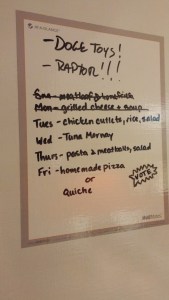 - DOGE TOYS!
- RAPTOR!!!
Sun - meatloaf
Mon - grilled cheese & soup
Tues - chicken cutlets, rice, salad
Wed - Tuna Mornay
Thurs - pasta & meatballs, salad
Fri - homemade pizza
or
Quiche
VOTE